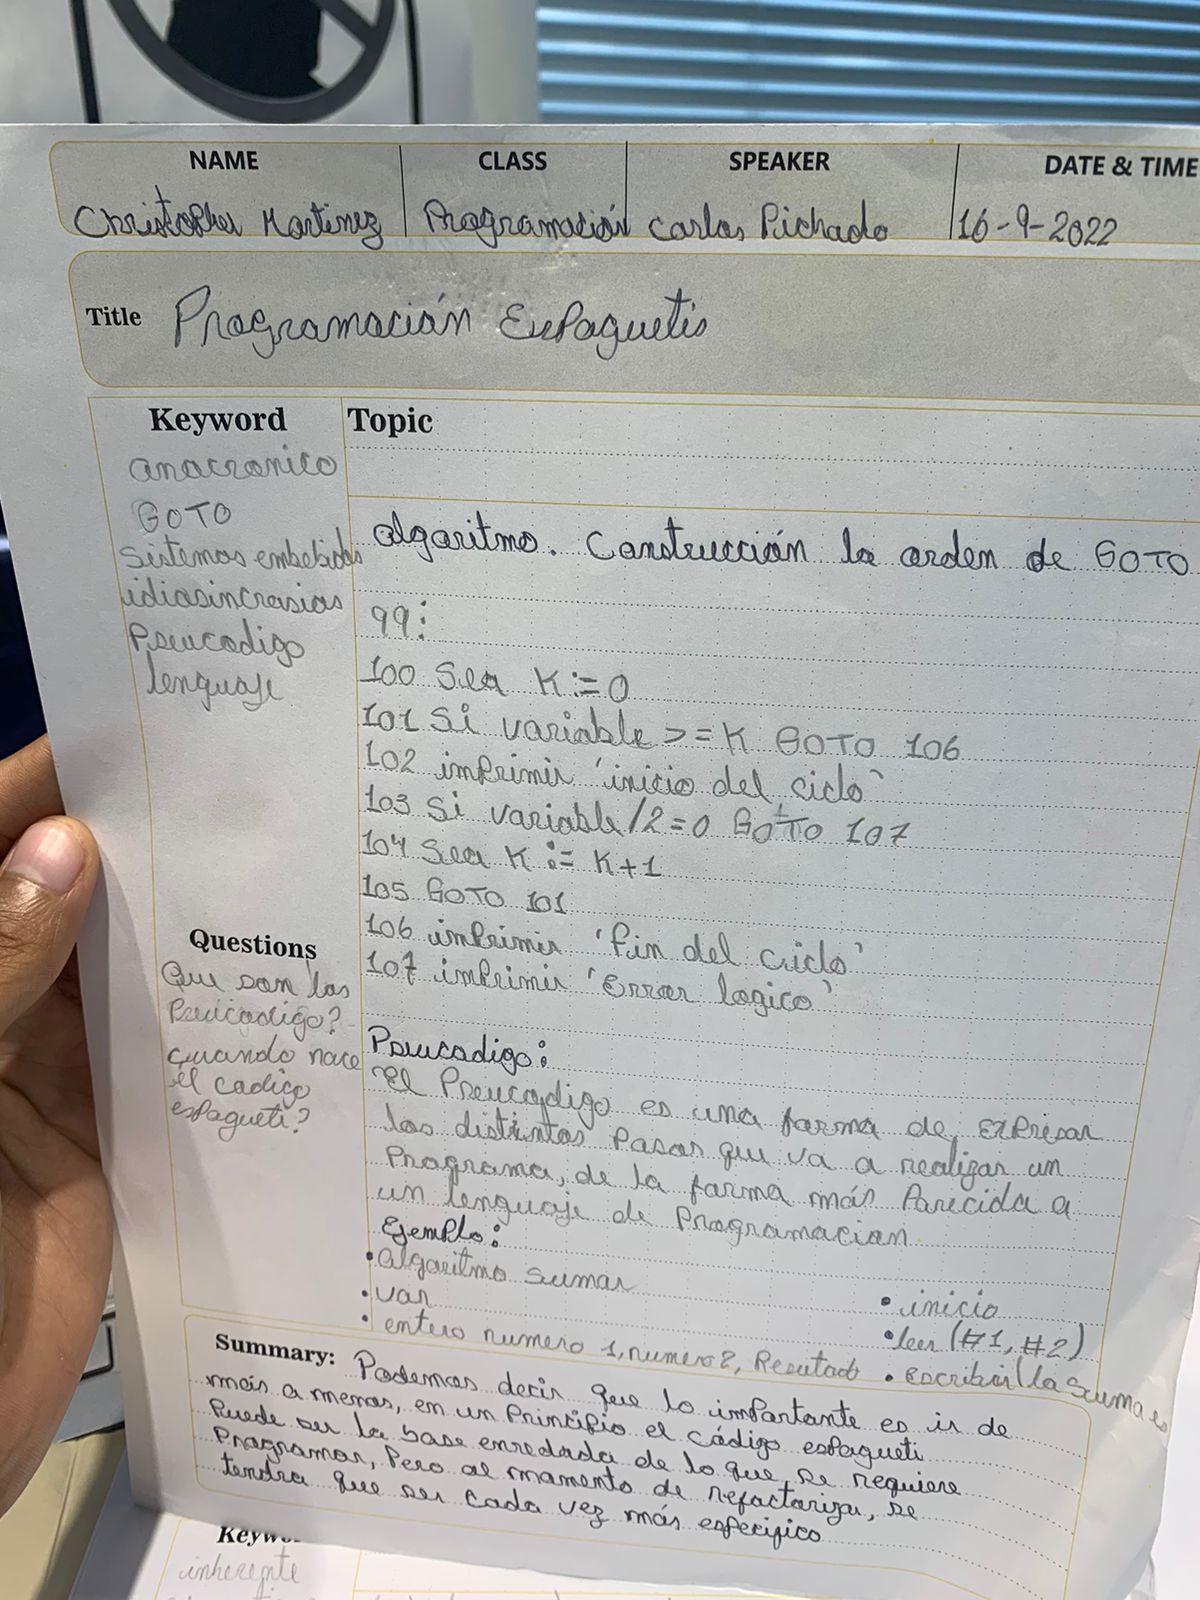 NAME CLASS SPEAKER DATE & TIME
Christopher Martinez Programación Carlos Pichado 16-9-2022
Title Programación Espaguetis
Keyword
anacronico
GOTO
Sistemas embebidos
idiosincrasias
Pseucodigo
lenguaje
Topic
algoritmo. Construcción la orden de GOTO
99:
100 Sea K:=0
101 Si variable >=K GOTO 106
102 imprimir 'inicio del ciclo'
103 Si variable/2=0 GOTO 107
104 Sea K := K+1
105 GOTO 101
106 imprimir 'Fin del criclo'
107 imprimir 'Error logico'
Questions
Que son los
Pseicodigo?
cuando nace
el codigo
espagueti?
Pseucodigo:
El Pseucodigo es una forma de expresar
los distintos Pasos que va a realizar un
Programa, de la forma más Parecida a
un lenguaje de Programacion
Ejemplo:
•algoritmo sumar
•var
• entero numero 1, numero 2, Resutado
• inicio
•leer (#1, #2)
• Escribir (la suma es
Summary: Podemos decir que lo importante es ir de
más a menos, en un Principio el código espagueti
Puede ser la base enredada de lo que se requiere
Programar, Pero al momento de refactorizar, se
tendra que ser cada vez más especifico
Keywo
inherente